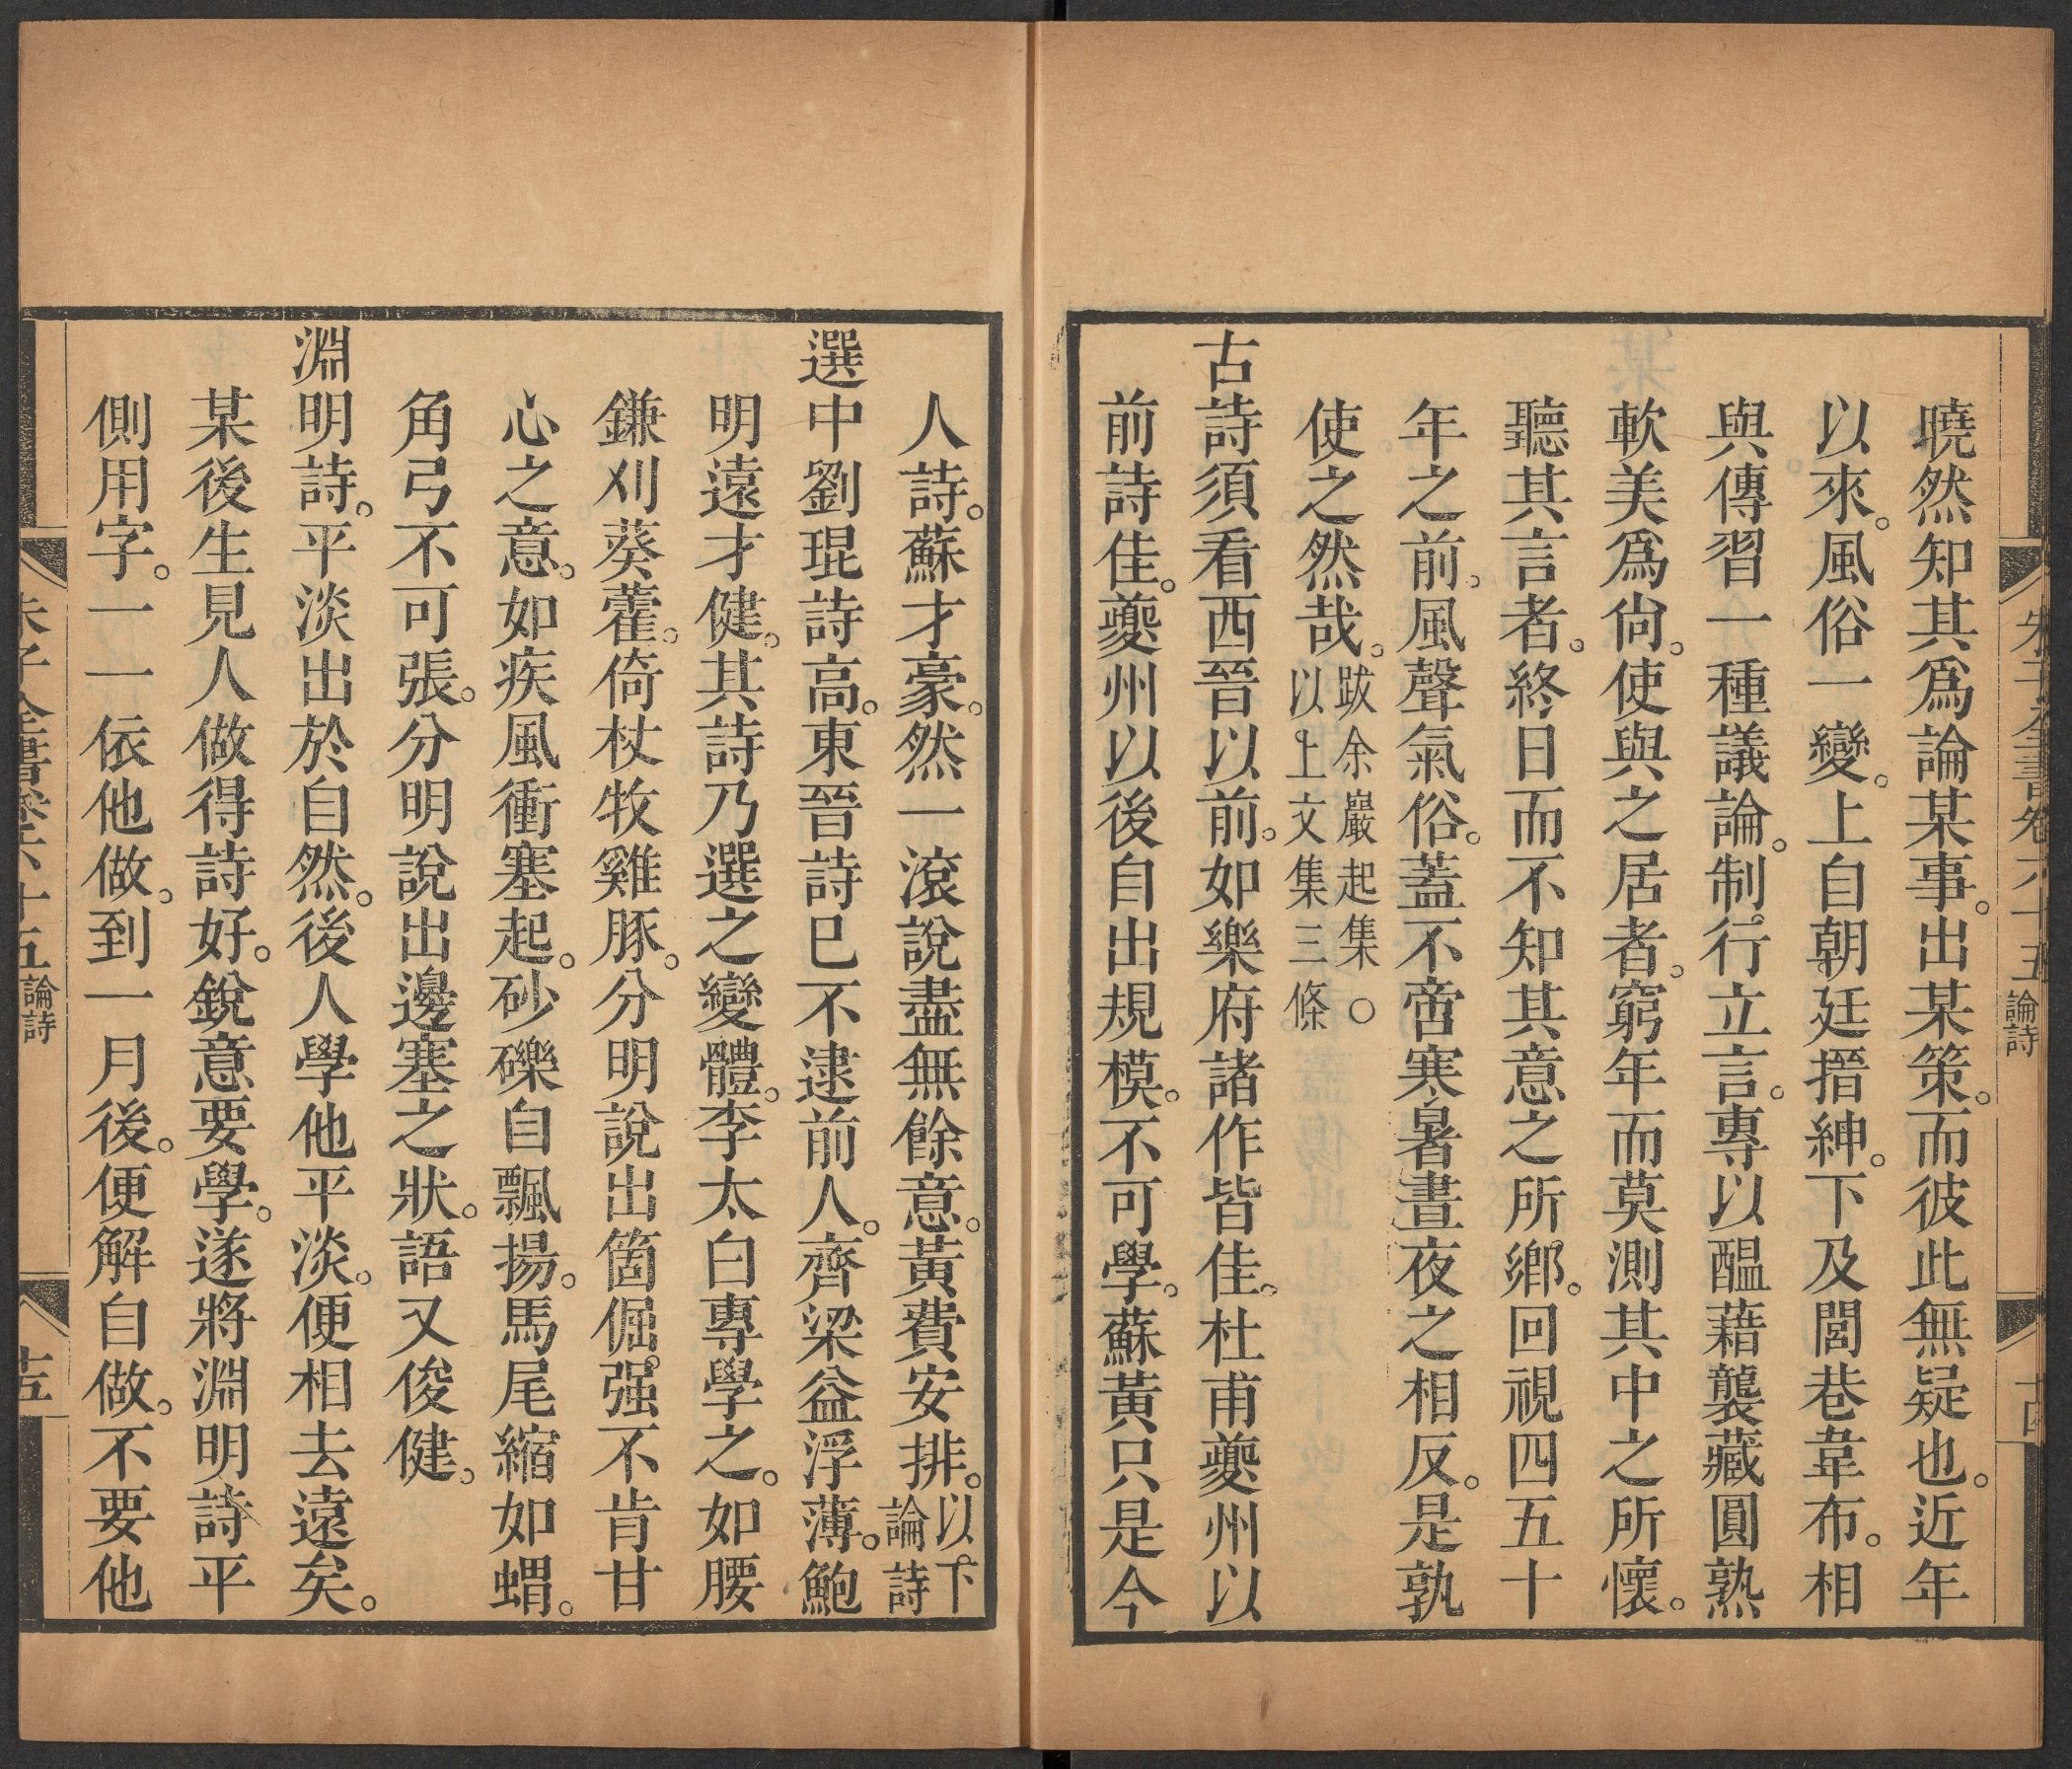 朱子全書卷六十五 論詩
曉然知其爲論某事。出某策。而彼此無疑也。近年
以來。風俗一變。上自朝廷搢紳。下及閭巷韋布。相
與傳習一種議論。制行立言。專以醞藉襲藏圓熟
軟美爲尙。使與之居者。窮年而莫測其中之所懷。
聽其言者。終日而不知其意之所鄉。回視四五十
年之前。風聲氣俗。蓋不啻寒暑晝夜之相反。是孰
使之然哉。跋余巖起集○
以上文集三條
古詩須看西晉以前。如樂府諸作皆佳。杜甫夔州以
前詩佳。夔州以後自出規模。不可學。蘇黃只是今
人詩。蘇才豪。然一滾說盡無餘意。黃費安排。以下
論詩
選中劉琨詩高。東晉詩已不逮前人。齊梁益浮薄。鮑
明遠才健。其詩乃選之變體。李太白專學之。如腰
鎌刈葵藿。倚杖牧雞豚。分明說出箇倔强不肯甘
心之意。如疾風衝塞起。砂礫自飄揚。馬尾縮如蝟。
角弓不可張。分明說出邊塞之狀。語又俊健。
淵明詩。平淡出於自然。後人學他平淡。便相去遠矣。
某後生見人做得詩好。銳意要學。遂將淵明詩平
側用字。一一依他做。到一月後。便解自做。不要他
朱子全書卷六十五 論詩
十五